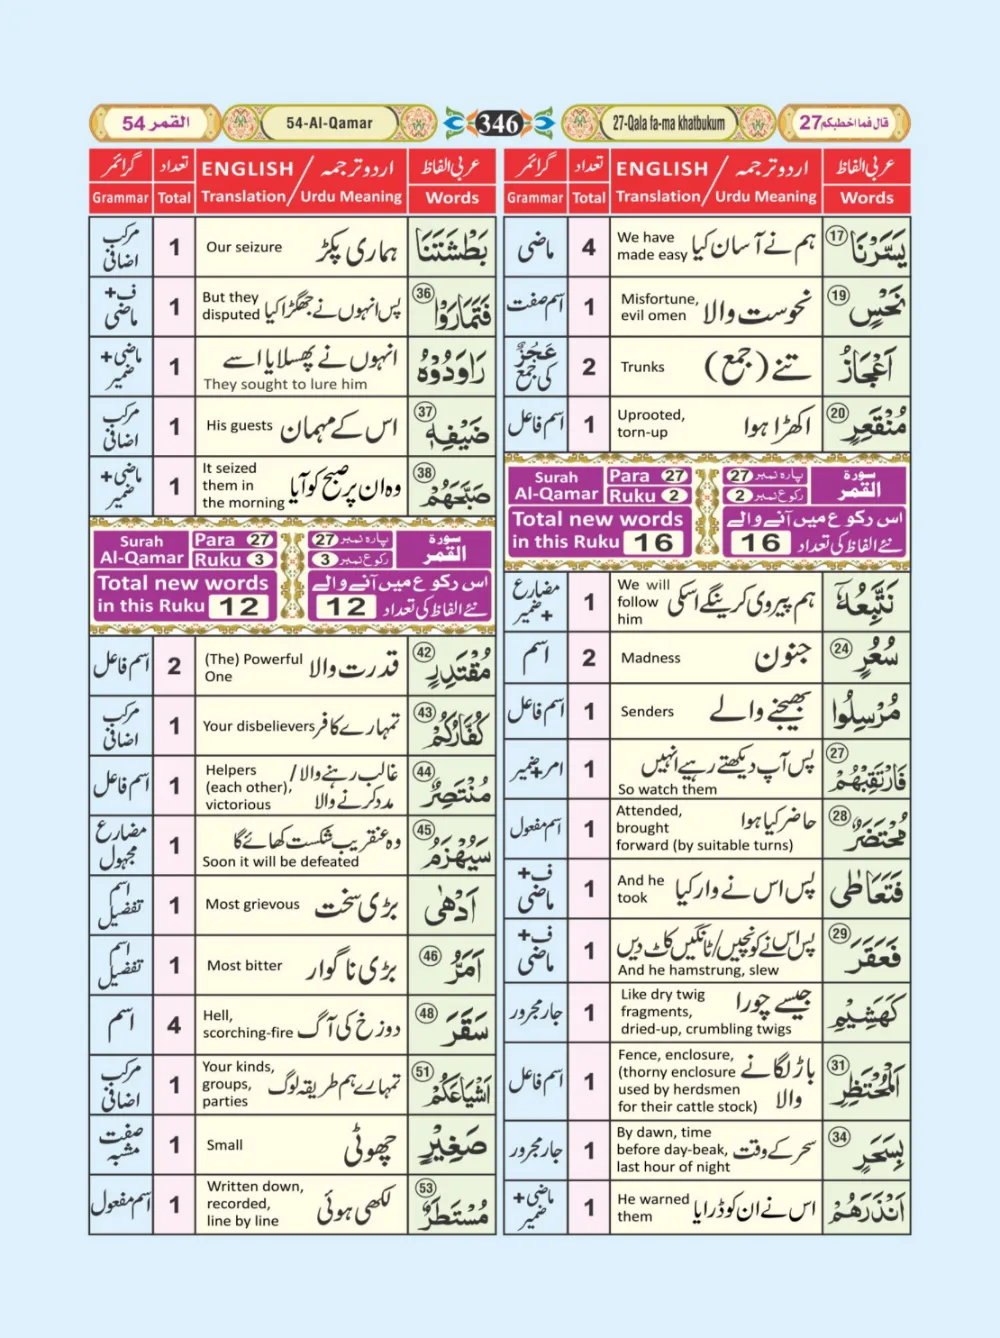 القمر 54
54-Al-Qamar
346
27-Qala fa-ma khatbukum
قال فما اخطبكم 27
عربی الفاظ
Words
ENGLISH / اردو ترجمہ
Translation / Urdu Meaning
تعداد
Total
گرائمر
Grammar
يَسَّرْنَا ⑰
ہم نے آسان کیا
We have
made easy
4
ماضی
نَحْسٍ ⑲
نحوست والا
Misfortune,
evil omen
1
اسم صفت
أَعْجَازُ
تنے (جمع)
Trunks
2
عَجُزٌ
کی جمع
مُنْقَعِرٍ ⑳
اکھڑا ہوا
Uprooted,
torn-up
1
اسم فاعل
Surah
Al-Qamar
Para 27
Ruku 2
پارہ نمبر 27
رکوع نمبر 2
سورۃ
القمر
Total new words
in this Ruku 16
اس رکوع میں آنے والے
نئے الفاظ کی تعداد 16
نَتَّبِعُهٗٓ
ہم پیروی کرینگے اسکی
We will
follow
him
1
مضارع
+ ضمیر
سُعُرٍ ㉔
جنون
Madness
2
اسم
مُرْسِلُوا
بھیجنے والے
Senders
1
اسم فاعل
فَارْتَقِبْهُمْ ㉗
پس آپ دیکھتے رہیے انہیں
So watch them
1
امر+ضمیر
مُحْتَضَرٌ ㉘
حاضر کیا ہوا
Attended,
brought
forward (by suitable turns)
1
اسم مفعول
فَتَعَاطٰى
پس اس نے وار کیا
And he
took
1
ف+
ماضی
فَعَقَرَ ㉙
پس اس نے کونچیں/ٹانگیں کاٹ دیں
And he hamstrung, slew
1
ف+
ماضی
كَهَشِيْمِ
جیسے چورا
Like dry twig
fragments,
dried-up, crumbling twigs
1
جار مجرور
الْمُحْتَظِرِ ㉛
باڑ لگانے
والا
Fence, enclosure,
(thorny enclosure
used by herdsmen
for their cattle stock)
1
اسم فاعل
بِسَحَرٍ ㉞
سحر کے وقت
By dawn, time
before day-beak,
last hour of night
1
جار مجرور
اَنْذَرَهُمْ
اس نے ان کو ڈرایا
He warned
them
1
ماضی +
ضمیر
عربی الفاظ
Words
ENGLISH / اردو ترجمہ
Translation / Urdu Meaning
تعداد
Total
گرائمر
Grammar
بَطْشَتَنَا
ہماری پکڑ
Our seizure
1
مرکب
اضافی
فَتَمَارَوْا ㊱
پس انہوں نے جھگڑا کیا
But they
disputed
1
ف+
ماضی
رَاوَدُوْهُ
انہوں نے پھسلایا اسے
They sought to lure him
1
ماضی +
ضمیر
ضَيْفِهٖ ㊲
اس کے مہمان
His guests
1
مرکب
اضافی
صَبَّحَهُمْ ㊳
وہ ان پر صبح کو آیا
It seized
them in
the morning
1
ماضی +
ضمیر
Surah
Al-Qamar
Para 27
Ruku 3
پارہ نمبر 27
رکوع نمبر 3
سورۃ
القمر
Total new words
in this Ruku 12
اس رکوع میں آنے والے
نئے الفاظ کی تعداد 12
مُقْتَدِرٍ ㊷
قدرت والا
(The) Powerful
One
2
اسم فاعل
كُفَّارُكُمْ ㊸
تمہارے کافر
Your disbelievers
1
مرکب
اضافی
مُنْتَصِرٌ ㊹
غالب رہنے والا/
مدد کرنے والا
Helpers
(each other),
victorious
1
اسم فاعل
سَيُهْزَمُ ㊺
وہ عنقریب شکست کھائے گا
Soon it will be defeated
1
مضارع
مجہول
اَدْهٰى
بڑی سخت
Most grievous
1
اسم
تفضیل
اَمَرُّ ㊻
بڑی ناگوار
Most bitter
1
اسم
تفضیل
سَقَرَ ㊽
دوزخ کی آگ
Hell,
scorching-fire
4
اسم
اَشْيَاعَكُمْ 51
تمہارے ہم طریقہ لوگ
Your kinds,
groups,
parties
1
مرکب
اضافی
صَغِيْرٍ
چھوٹی
Small
1
صفت
مشبہ
مُسْتَطَرٌ 53
لکھی ہوئی
Written down,
recorded,
line by line
1
اسم مفعول